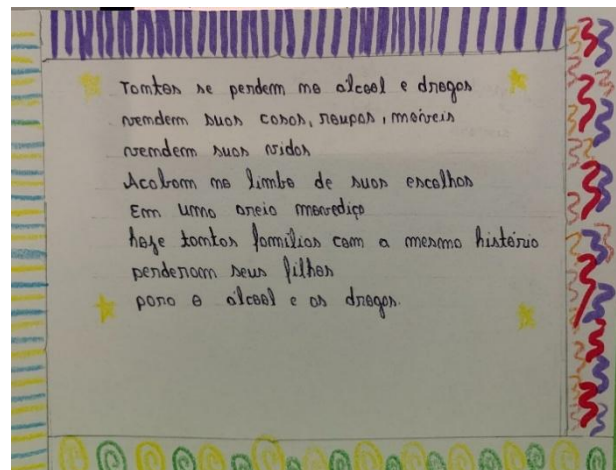 Tantos se perdem no álcool e drogas
vendem suas casas, roupas, móveis
vendem suas vidas
Acabam no limbo de suas escolhas
Em uma areia movediça
hoje tantas famílias com a mesma história
perderam seus filhos
para o álcool e as drogas.